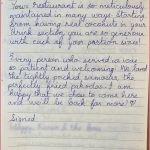 Your restaurant is so meticulously
maintained in many ways. Starting
from having real coconuts in your
drink section, you are so generous
with each of your portion sizes!
Every person who served us was
so patient and welcoming! We loved
the tightly packed samosas, the
perfectly fried pakodas! I am
happy that we chose to come here
and we'll be back for more! ♡
Signed